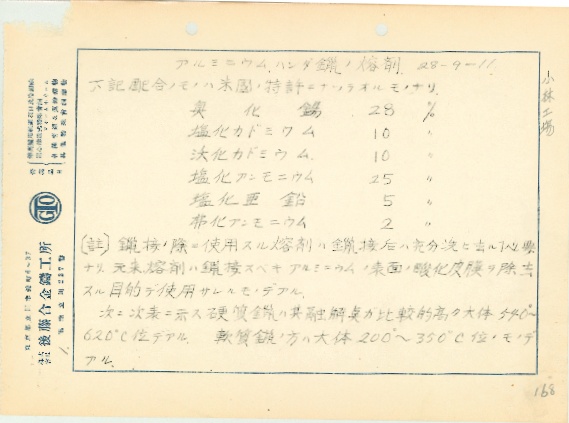 アルミニウム、ハンダ鑞ノ熔剤 28-9-11
下記配合ノモノハ米国ノ特許ニナッテオルモノナリ.
臭化錫 28 %
塩化カドミウム 10 〃
沃化カドミウム 10 〃
塩化アンモニウム 25 〃
塩化亜鉛 5 〃
弗化アンモニウム 2 〃
[註] 鑞接ノ際ニ使用スル熔剤ハ鑞接后ハ充分洗ヒ去ルベク
ナリ. 元来熔剤ハ鑞接スベキアルミニウムノ表面ノ酸化皮膜ヲ除去
スル目的デ使用サレルモノデアル.
次ニ次表ニ示ス硬質鑞ハ其融解点ガ比較的高ク大体540~
620°C位デアル. 軟質鑞ノ方ハ大体200°~350°C位ノモノデ
アル.
小林工場
GTO
後藤合金鑄工所
168